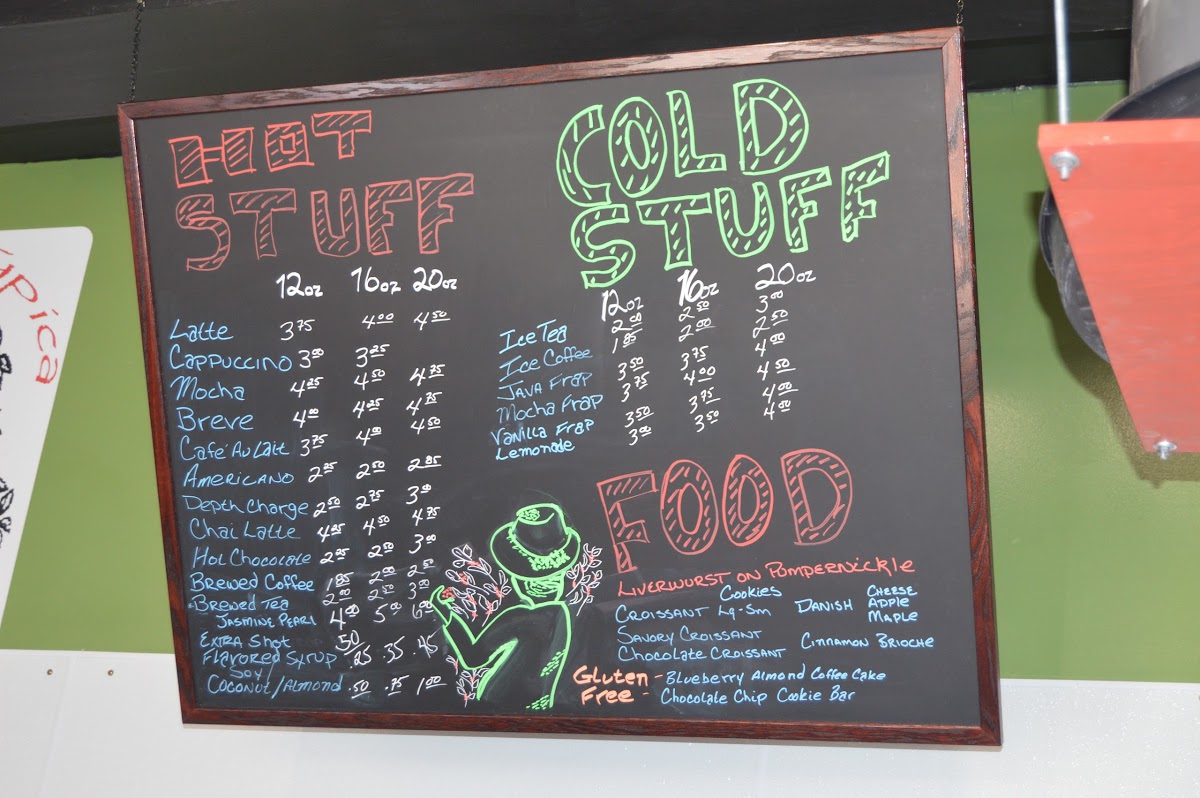 ypica
HOT
STUFF
12oz 16oz 20oz
Latte 3⁷⁵ 4⁰⁰ 4⁵⁰
Cappuccino 3⁰⁰ 3²⁵
Mocha 4²⁵ 4⁵⁰ 4⁷⁵
Breve 4⁰⁰ 4²⁵ 4⁷⁵
Café Au Lait 3⁷⁵ 4⁰⁰ 4⁵⁰
Americano 2²⁵ 2⁵⁰ 2⁸⁵
Depth Charge 2⁵⁰ 2⁷⁵ 3⁰⁰
Chai Latte 4²⁵ 4⁵⁰ 4⁷⁵
Hot Chocolate 2²⁵ 2⁵⁰ 3⁰⁰
Brewed Coffee 1⁸⁵ 2⁰⁰ 2⁵⁰
Brewed Tea 2⁰⁰ 2⁵⁰ 3⁰⁰
- Jasmine Pearl 4⁰⁰ 5⁰⁰ 6⁰⁰
Extra Shot .50
Flavored Syrup .25 .35 .45
Soy/
Coconut/Almond .50 .75 1.00
COLD
STUFF
12oz 16oz 20oz
Ice Tea 2⁰⁰ 2⁵⁰ 3⁰⁰
Ice Coffee 1⁸⁵ 2⁰⁰ 2⁵⁰
Java Frap 3⁵⁰ 3⁷⁵ 4⁰⁰
Mocha Frap 3⁷⁵ 4⁰⁰ 4⁵⁰
Vanilla Frap 3⁵⁰ 3⁷⁵ 4⁰⁰
Lemonade 3⁰⁰ 3⁵⁰ 4⁰⁰
FOOD
Liverwurst on Pompernickle
Cookies
Croissant Lg-Sm
Danish Cheese
Apple
Maple
Savory Croissant
Chocolate Croissant
Cinnamon Brioche
Gluten - Blueberry Almond Coffee Cake
Free - Chocolate Chip Cookie Bar